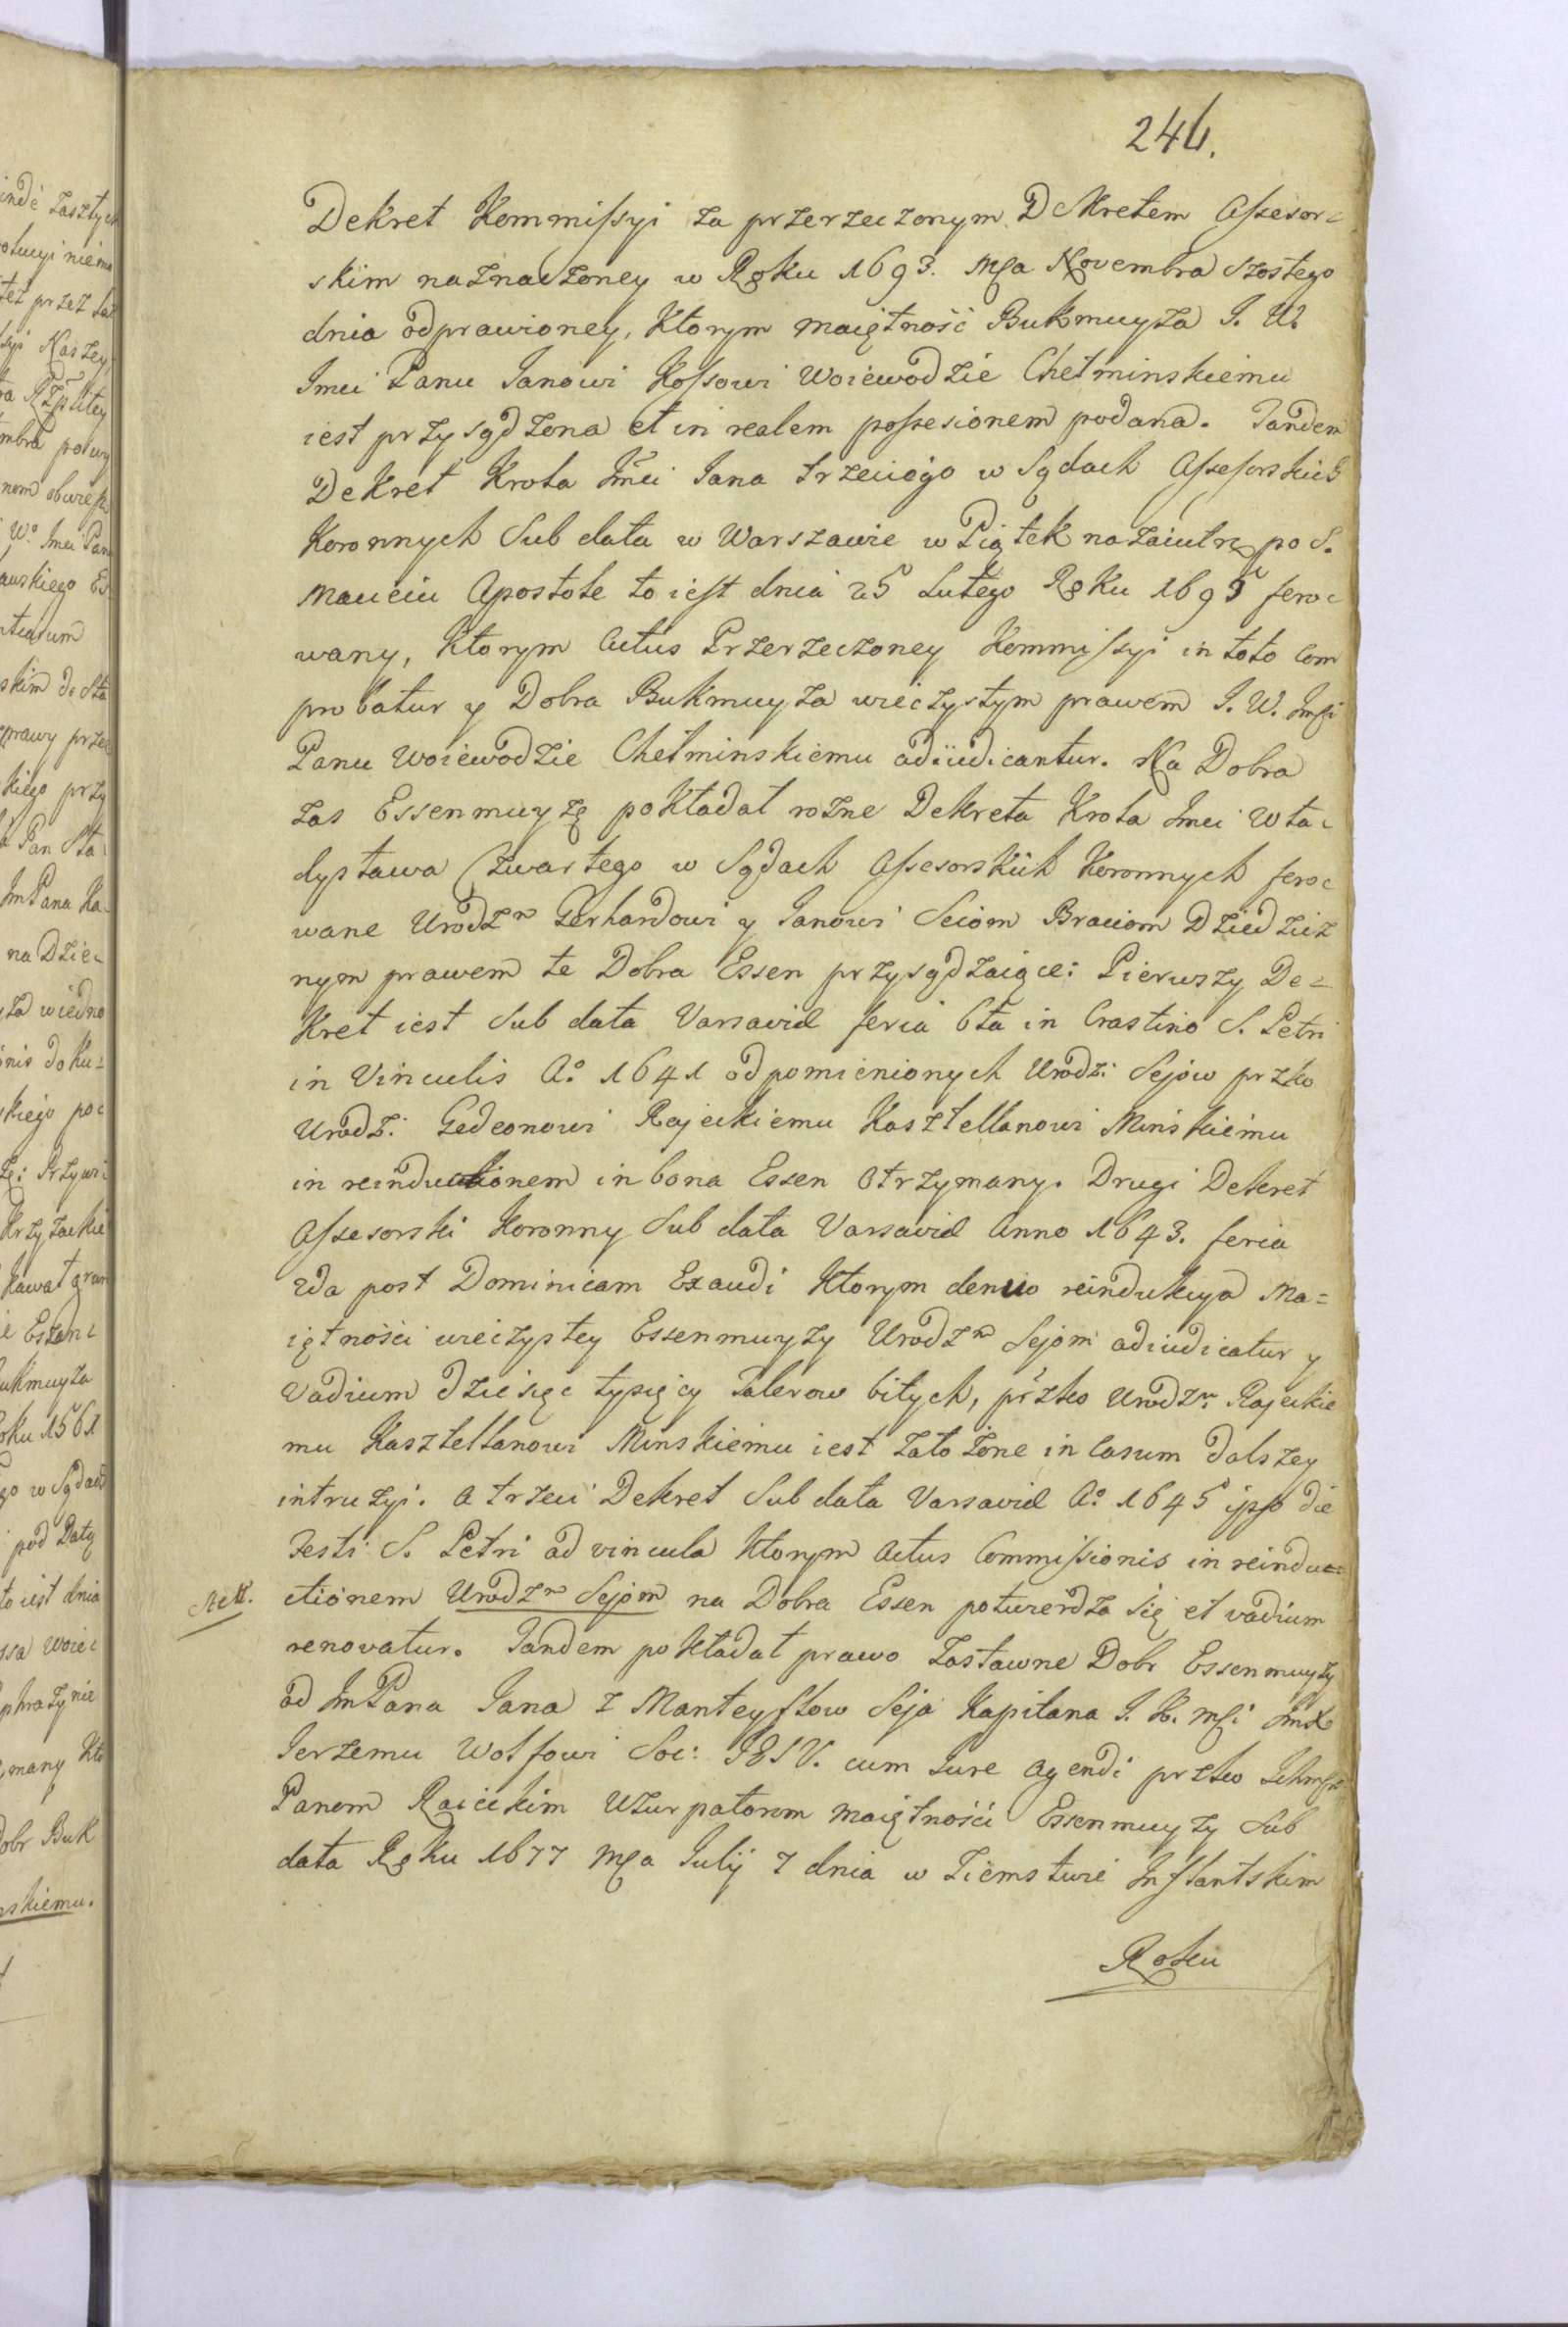 244.
Dekret Kommissyi za przerzeczonym Dekretem Assesor=
skim naznaczoney w Roku 1693. Msa Novembra Szostego
dnia odprawioney, Ktorym maiętność Bukmuyza J. W.
Jmci Panu Janowi Kossowi Woiewodzie Chełminskiemu
iest przysądzona et in realem possesionem podana. Tandem
Dekret Krola Jmci Jana trzeciego w Sądach Assessorskich
Koronnych Sub data w Warszawie w Piątek nazaiutrz po S.
Macieiu Apostole to iest dnia 25 Lutego Roku 1695 fero=
wany, Ktorym Actus Przerzeczoney Kommissyi in toto com
probatur y Dobra Bukmuyza wieczystym prawem J. W. Jmsi
Panu Woiewodzie Chełminskiemu adiudicantur. Na Dobra
zas Essenmuyzę pokładał rożne Dekreta Krola Jmci Wła=
dysława Czwartego w Sądach Assesorskich Koronnych fero=
wane Urodzm Gerhardowi y Janowi Seiom Braciom Dziedzicz
nym prawem te Dobra Essen przysądzaiące: Pierwszy De=
kret iest Sub data Varsaviæ feria 6ta in Crastino S. Petri
in Vinculis Ao 1641 od pomienionych Urodz: Sejow przko
Urodz: Gedeonowi Rajeckiemu Kasztellanowi Minskiemu
in reinductionem in bona Essen otrzymany. Drugi Dekret
Assesorski Koronny Sub data Varsaviæ Anno 1643. feria
2da post Dominicam Exaudi Ktorym denuo reindukcya Ma=
iętności wieczystey Essenmuyzy Urodzm Sejom adiudicatur y
Vadium dziesięc tysięcy Talerow bitych, przko Urodzm. Rajeckie
mu Kasztellanowi Minskiemu iest założone in Casum dalszey
intruzyi. A trzeci Dekret Sub data Varsaviæ Ao 1645 ipso die
Festi S. Petri ad vincula Ktorym Actus Commissionis in reindu=
ctionem Urodzm Sejom na Dobra Essen potwierdza się et vadium
renovatur. Tandem pokładał prawo Zastawne Dobr Essenmuyzy
od JmPana Jana z Manteyflow Seja Kapitana J. K. Msi JmX
Jerzemu Wolfowi Soc: JESV. cum Jure agendi przko
Panom Raieckim Uzurpatorom maiętności Essenmuyzy Sub
data Roku 1677 Msa Julij 7 dnia w Ziemstwie Inflantskim
Roku